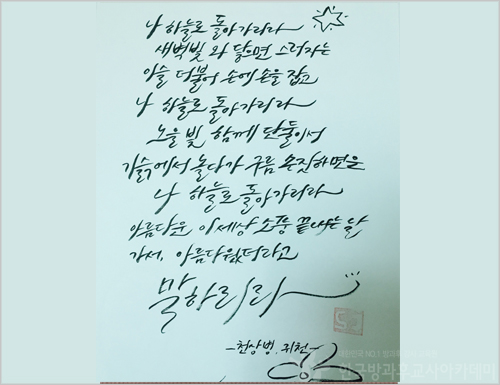 나 하늘로 돌아가리라
새벽빛 와 닿으면 스러지는
이슬 더불어 손에 손을 잡고
나 하늘로 돌아가리라
노을 빛 함께 단둘이서
기슭에서 놀다가 구름 손짓하면은
나 하늘로 돌아가리라
아름다운 이 세상 소풍 끝내는 날
가서, 아름다웠더라고
말하리라
-천상병. 귀천-
대한민국 NO.1
한국방과후교사아카데미